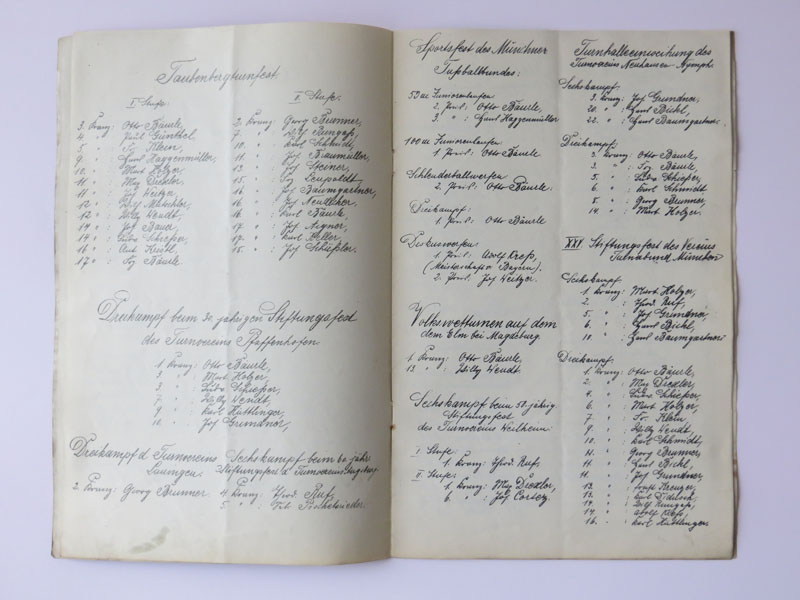 Taubenbergturnfest
I. Stufe:
3. Kranz: Otto Bäurle
4. " : Paul Günthel
5 " : Sr. Klein
9. " : Haggenmüller,
10. " : Mart. Holzer
11. " : Max Drexler
11. " : Jos. Weitzer
12 " :
12 " : Willy Wendt,
14 " : Jos. Bauer
14 " : Ludw. Schießer,
16 " :
17 " : Sog. Bäurle
II. Stufe.
2. Kranz: Georg Brunner,
7. " :
10. " : Karl Schmidt,
11. " : Jos. Baumüller,
13. " : Jos. Steiner,
15. " : Leupoldt,
16. " : Jos. Baumgartner,
16. " : Jos.
16 " : Karl Bäurle,
17. " : Jos. Aigner,
17. " : Karl Keller
18. " : Jos.
Dreikampf beim 30 jährigen Stiftungsfest
des Turnvereins Pfaffenhofen
1. Kranz: Otto Bäurle,
3. " : Mart. Holzer,
3. " : Ludw. Schießer,
7. " : Willy Wendt,
9. " : Karl Hüttlinger
10. " : Jos. Grundner,
Dreikampf d. Turnvereins
Lauingen.
2. Kranz: Georg Brunner.
Sechskampf beim 60 jähr.
Stiftungsfest d. Turnvereins
4. Kranz: Thod. Ruf,
5. " :
Sportsfest des Münchner
Fußballbundes:
50 m Juniorenlaufen
2. Preis: Otto Bäurle,
3. " : Haggenmüller
100 m Juniorenlaufen
1. Preis: Otto Bäurle
Schleuderballwerfen
2. Preis: Otto Bäurle.
Dreikampf:
1. Preis: Otto Bäurle
Diskuswerfen:
1. Preis: Adolf Kreß,
(Meisterschaft v. Bayern).
2. Preis: Jos. Weitzer.
Volkswetturnen auf dem
dem Elm bei Magdeburg.
1. Kranz: Otto Bäurle,
13. " : Willy Wendt.
Sechskampf beim 50 jährig.
Stiftungsfest
des Turnvereins Weilheim:
I. Stufe:
1. Kranz: Thod. Ruf.
II. Stufe:
1. Kranz: Max Drexler,
6. " : Jos. Cortez.
Turnhalleeinweihung des
Turnverein Neuhausen-Nymph.
Sechskampf:
3. Kranz: Jos. Grundner,
20. " : Bichl,
22. " : Baumgartner.
Dreikampf:
3. Kranz: Otto Bäurle.
3. " : Sog. Bäurle,
5. " : Ludw. Schießer,
6. " : Karl Schmidt,
8. " : Georg Brunner
14. " : Mart. Holzer.
XXV. Stiftungsfest des Vereins
Turnabund, München
Sechskampf
1. Kranz: Mart. Holzer,
2. " : Thod. Ruf,
5. " : Jos. Grundner,
6. " : Bichl,
10. " : Baumgartner
Dreikampf:
1. Kranz: Otto Bäurle,
2. " : Max Drexler,
4. " : Ludw. Schießer,
6. " : Mart. Holzer,
7. " : Sr. Klein
9. " : Willy Wendt,
10. " : Karl Schmidt,
11. " : Georg Brunner
11. " : Bichl,
11. " : Jos. Grundner,
12. " : Kreuzer,
13. " : Karl
13. " :
14. " : Adolf Kreß,
16. " : Karl Hüttlinger